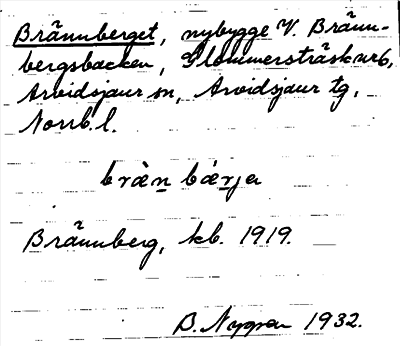 Brännberget, nybygge V. Bränn-
bergsbacken, Glommersträsk nr 6,
Arvidsjaur sn, Arvidsjaur tg,
Norrb. l.
bràn bárja
Brännberg, kb. 1919.
B. Nygren 1932.